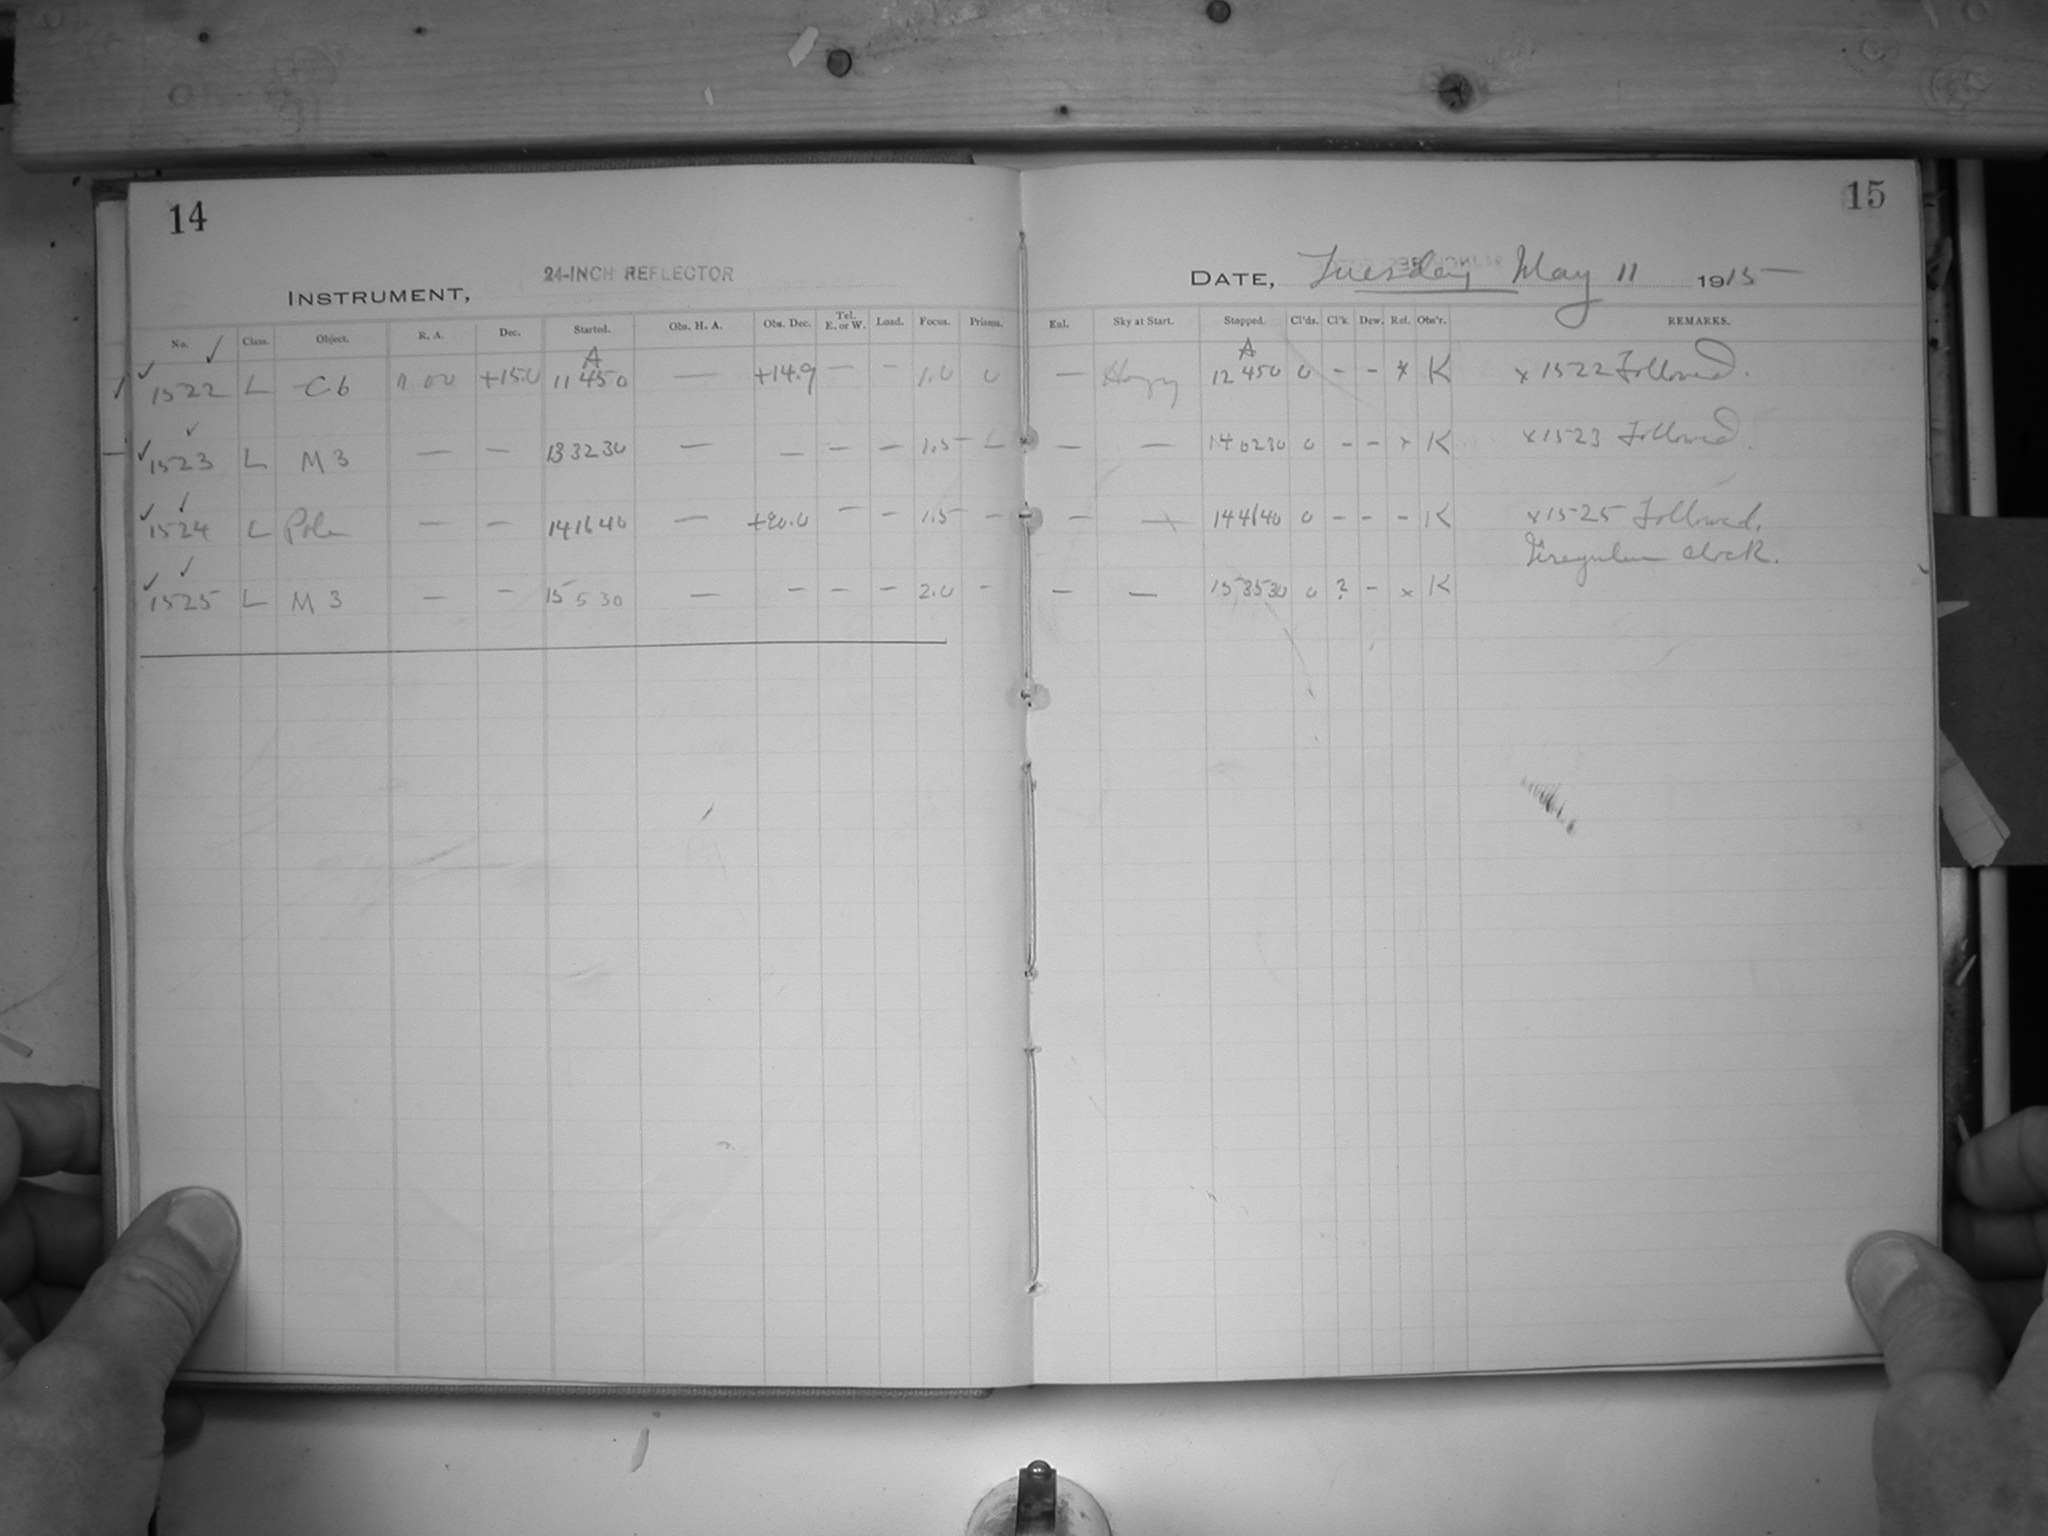 14
15
24-INCH REFLECTOR
INSTRUMENT,
DATE, Tuesday May 11 1915
No. Class. Object. R. A. Dec. Started. Obs. H. A. Obs. Dec. Tel. E. or W. Load. Focus. Prisms. Exl. Sky at Start. Stopped. Cl'ds. Cl'k Dew. Ref. Obs'r. REMARKS.
A A
✓ 1522 L C6 +15.0 11 45 0 — +14.9 — — 1.0 0 — Hazy 12 45 0 0 - - x K x 1522 Followed.
✓ 1523 L M 3 — — 13 32 30 — — — — 1.5 — — — 14 02 30 0 - - x K x 1523 Followed.
✓ 1524 L Pole — — 14 16 40 — +90.0 — — 1.5 — — — 14 46 40 0 - - - K x 1525 Followed.
Irregular clock.
✓ 1525 L M 3 — — 15 5 30 — — — — 2.0 — — — 15 35 30 0 ? - x K